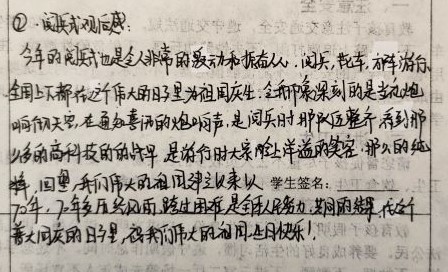 ②·阅兵式观后感:
今年的阅兵式也是令人非常的激动和振奋人心。阅兵,花车,方阵游行,
全国上下都在这个伟大的日子里为祖国庆生。令我印象深刻的是当礼炮
响彻天空,在通知喜讯的炮响声,是阅兵时那队伍整齐,看到那
么多的高科技的的战车,是游行时大家脸上洋溢的笑容,那么的纯
粹,回望我们伟大的祖国建立以来以 学生签名:
70年,70年多历经风雨,跨过困难,是全体人民努力,共同的结果,在这个
普天同庆的日子里,祝我们伟大的祖国生日快乐!